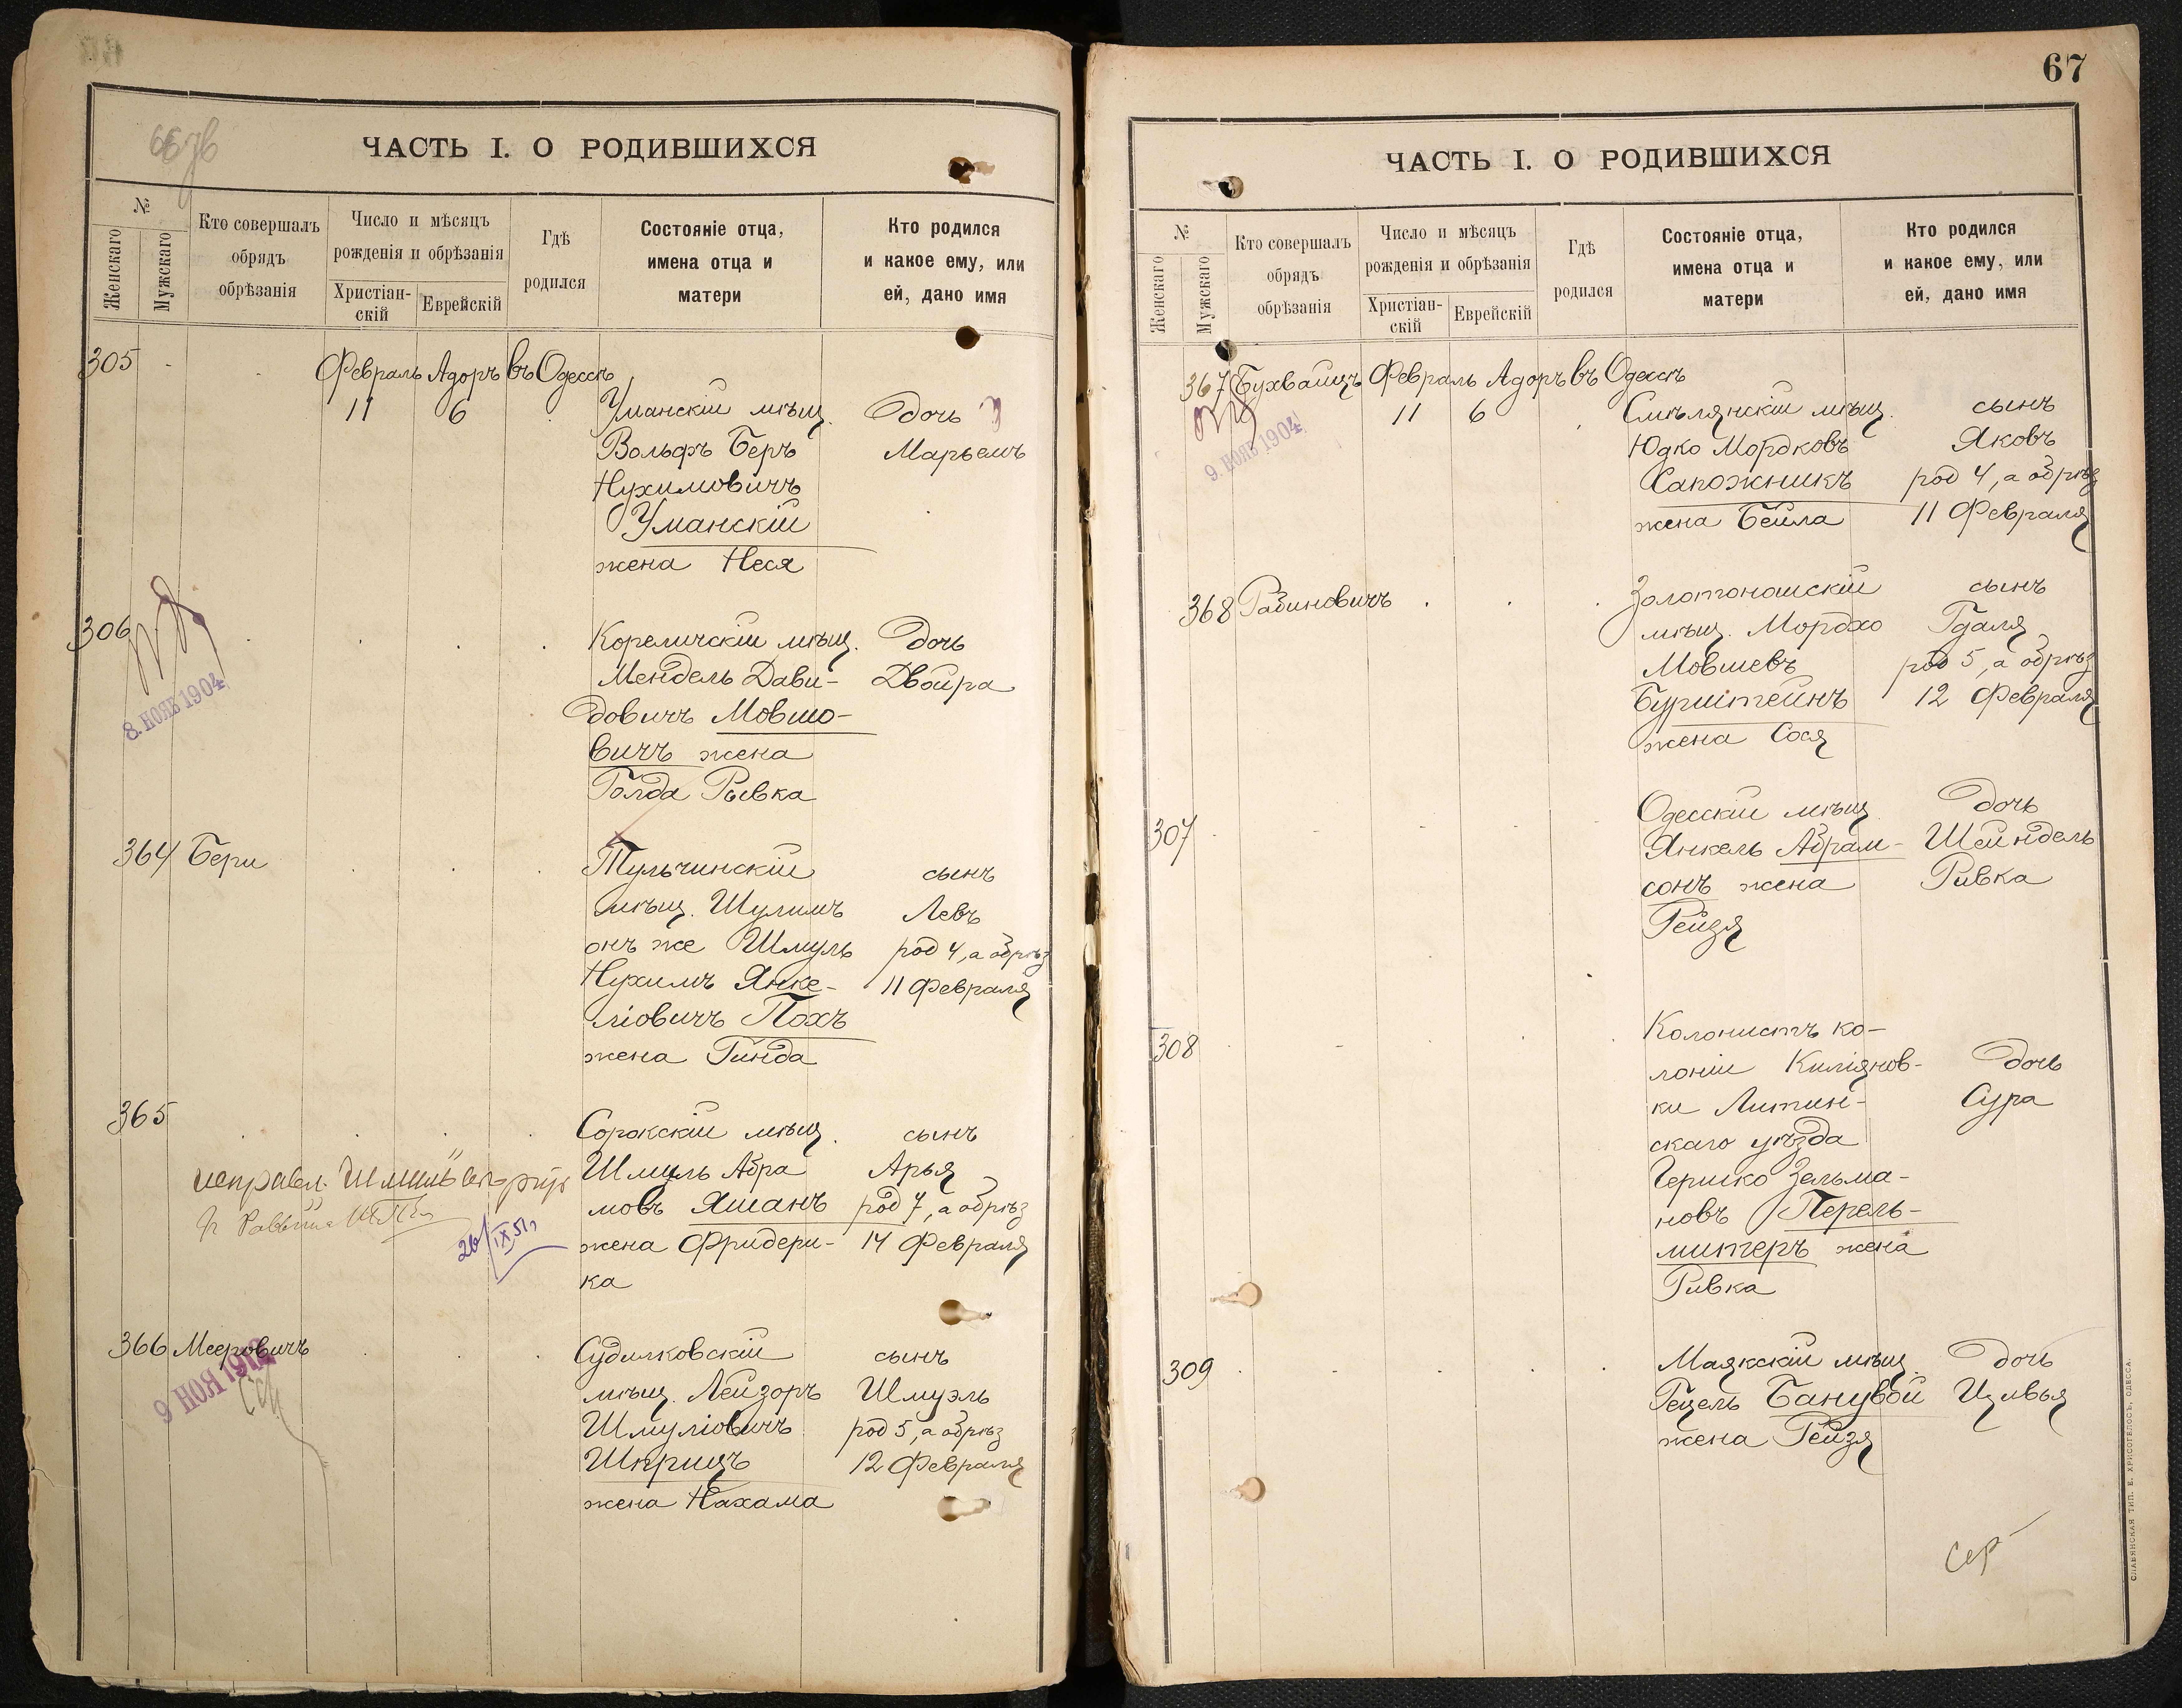 66 зв
ЧАСТЬ I. О РОДИВШИХСЯ
№
Женскаго
Мужскаго
Кто совершалъ
обрядъ
обрѣзанія
Число и мѣсяцъ
рожденія и обрѣзанія
Христіан-
скій
Еврейскій
Гдѣ
родился
Состояніе отца,
имена отца и
матери
Кто родился
и какое ему, или
ей, дано имя
305 Февраль Адоръ въ Одессѣ
11 6 Уманскій мѣщ. дочь
Вольфъ Беръ Марьемъ
Нухимовичъ
Уманскій
жена Неся
306 Кореличскій мѣщ. дочь
8. НОЯБ 1904
Мендель Дави- Двойра
довичъ Мовшо-
вичъ жена
Голда Рывка
364 Бери Тульчинскій сынъ
мѣщ. Шулимъ Левъ
онъ же Шмуль род 4, а обрѣз
Нухимъ Янке- 11 Февраля
ліовичъ Похъ
жена Гинда
365 Сорокскій мѣщ. сынъ
Шмуль Абра Арья
мовъ Яшанъ род 7, а обрѣз
жена Фридери- 14 Февраля
ка
исправл.
26/IX 51
366 Мееровичъ Судилковскій сынъ
мѣщ. Лейзоръ Шмуэль
Шмуліовичъ род 5, а обрѣз
Шприцъ 12 Февраля
жена Нахама
67
ЧАСТЬ I. О РОДИВШИХСЯ
№
Женскаго
Мужскаго
Кто совершалъ
обрядъ
обрѣзанія
Число и мѣсяцъ
рожденія и обрѣзанія
Христіан-
скій
Еврейскій
Гдѣ
родился
Состояніе отца,
имена отца и
матери
Кто родился
и какое ему, или
ей, дано имя
367 Бухвайцъ Февраль Адоръ въ Одессѣ
9. НОЯБ 1904
11 6 Смѣлянскій мѣщ. сынъ
Юдко Мордковъ Яковъ
Сапожникъ род 4, а обрѣз
жена Бейла 11 Февраля
368 Рабиновичъ Золотоношскій сынъ
мѣщ. Мордхо Гдаля
Мовшевъ род 5, а обрѣз
Бурштейнъ 12 Февраля
жена Сося
307 Одесскій мѣщ. дочь
Янкель Абрам- Шейндель
сонъ жена Ривка
Рейзя
308 Колонистъ ко-
лоніи Киліянов- дочь
ки Литин- Сура
скаго уѣзда
Гершко Зельма-
новъ Перель-
митеръ жена
Ривка
309 Маякскій мѣщ. дочь
Гецель Банувой Цивья
жена Рейзя
СЛАВЯНСКАЯ ТИП. Е. ХРИСОГЕЛОСЪ, ОДЕССА.